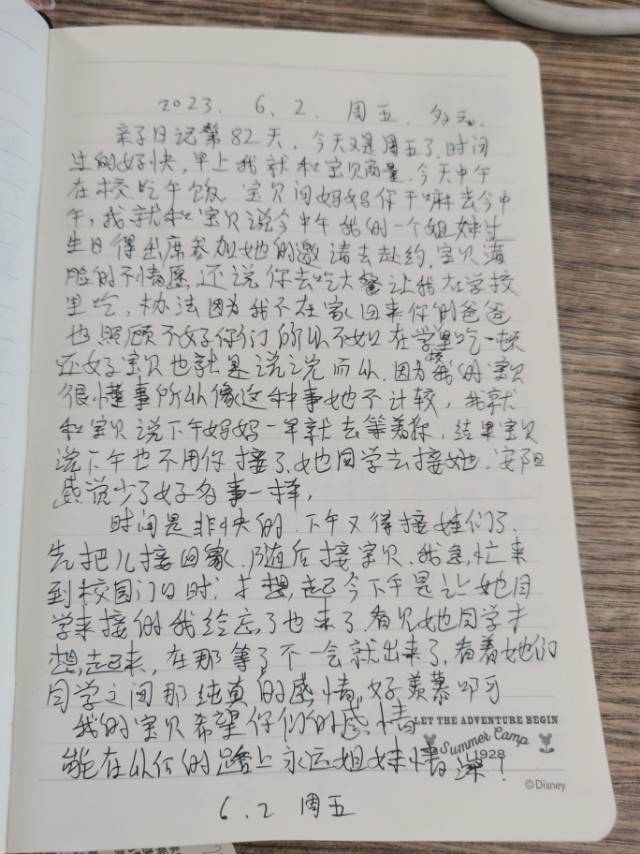 2023. 6.2. 周五. 多云.
亲子日记第82天, 今天又是周五了, 时间
过的好快, 早上我就和宝贝商量, 今天中午
在校吃午饭, 宝贝问妈妈你干嘛去今中
午, 我就和宝贝说今中午我的一个姐妹生
生日得出席参加她的邀请去赴约, 宝贝满
脸的不情愿, 还说你去吃大餐让我在学校
里吃, 办法因为我不在家回来你的爸爸
也照顾不好你们所以不如在学校里吃一顿
还好宝贝也就是说说而以, 因为我的宝贝
很懂事所以像这种事她不计较, 我就
和宝贝说下午妈妈一早就去等着你, 结果宝贝
说下午也不用你接了, 她同学去接她.
感觉少了好多事一样,
时间是非快的, 下午又得接娃们了,
先把儿接回家, 随后接宝贝, 我急忙来
到校园门口时, 才想起今下午是让她同
学来接的我给忘了也来了, 看见她同学才
想起来, 在那等了不一会就出来了, 看着她们
同学之间那纯真的感情, 好羡慕叩可
我的宝贝希望你们的感情
能在以后的路上永远姐妹情深!
6.2 周五
LET THE ADVENTURE BEGIN
Summer Camp
1928
©Disney